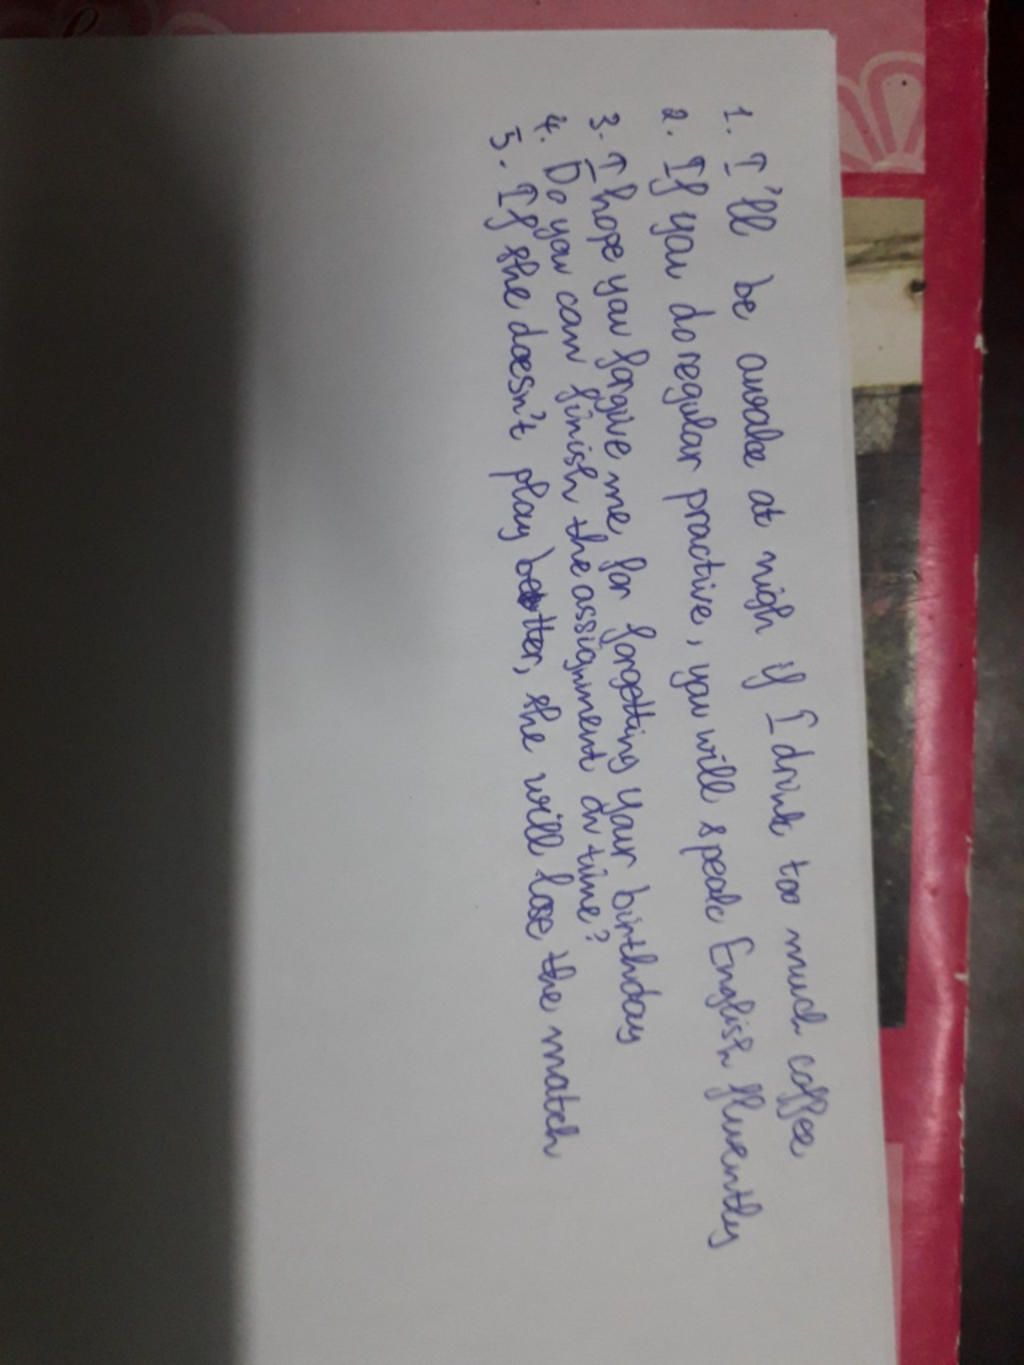 1. I'll be awake at nigh if I drink too much coffee
2. If you do regular practive, you will speak English fluently
3. I hope you forgive me for forgetting your birthday
4. Do you can finish the assignment on time?
5. If she doesn't play better, she will lose the match